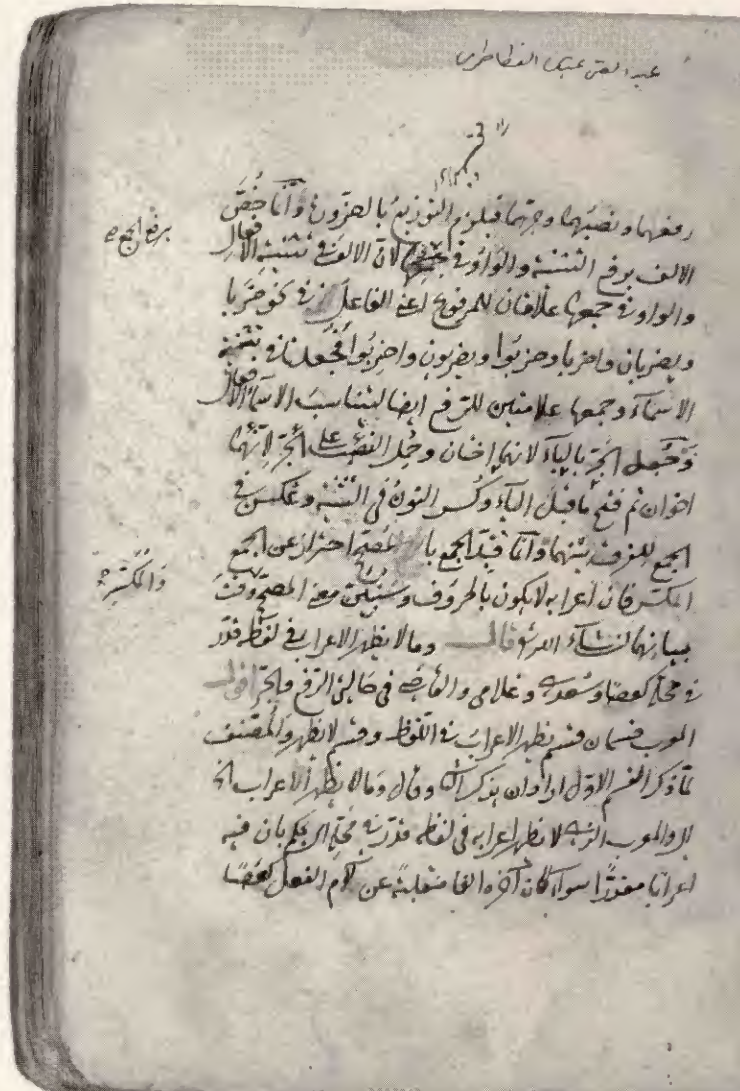 رفعهما ونصبهما وجرهما فيلزم التوزيع بالضرورة وانما خُصَّ
الالف برفع التثنية والواو في لان الالف في تثنية الافعال
برفع الجمع
والواو في جمعها علامتان للمرفوع اعني الفاعل في نحو ضربا
ويضربان واضربا وضربوا ويضربون واضربوا فجُعلتا في تثنية
الاسماء وجمعها علامتين للرفع ايضا ليتناسب الاسماء الافعال
وجُعل الجرّ بالياء لانهما اختان وحُمل النصب على الجرّ لانهما
اخوان ثم فتح ما قبل الياء وكُسر النونُ في التثنية وعُكس في
الجمع للفرق بينهما وانما قيّد الجمع بالمصحّح احتراز عن الجمع
المكسّر فان اعرابه لا يكون بالحروف وستبيّن معنى المصحّح وقت
والمكسّر
بيانهما ان شاء الله تعالى قال وما لا يظهر الاعراب في لفظه قدّر
في محلّه كعصا وسُعدى وغلامي والقاضي في حالتي الرفع والجرّ اقول
المعرب قسمان قسم يظهر الاعرابُ في اللفظ وقسم لا يظهر والمصنف
لمّا ذكر القسم الاوّل اراد ان يذكر الثاني وقال وما لا يظهر الاعراب الخ
والمعرب الذي لا يظهر اعرابه في لفظه قدّر في محلّه اي يحكم بان فيه
اعرابًا مقدّرًا سواء كان آخره الفا منقلبة عن لام الفعل كعَصًا